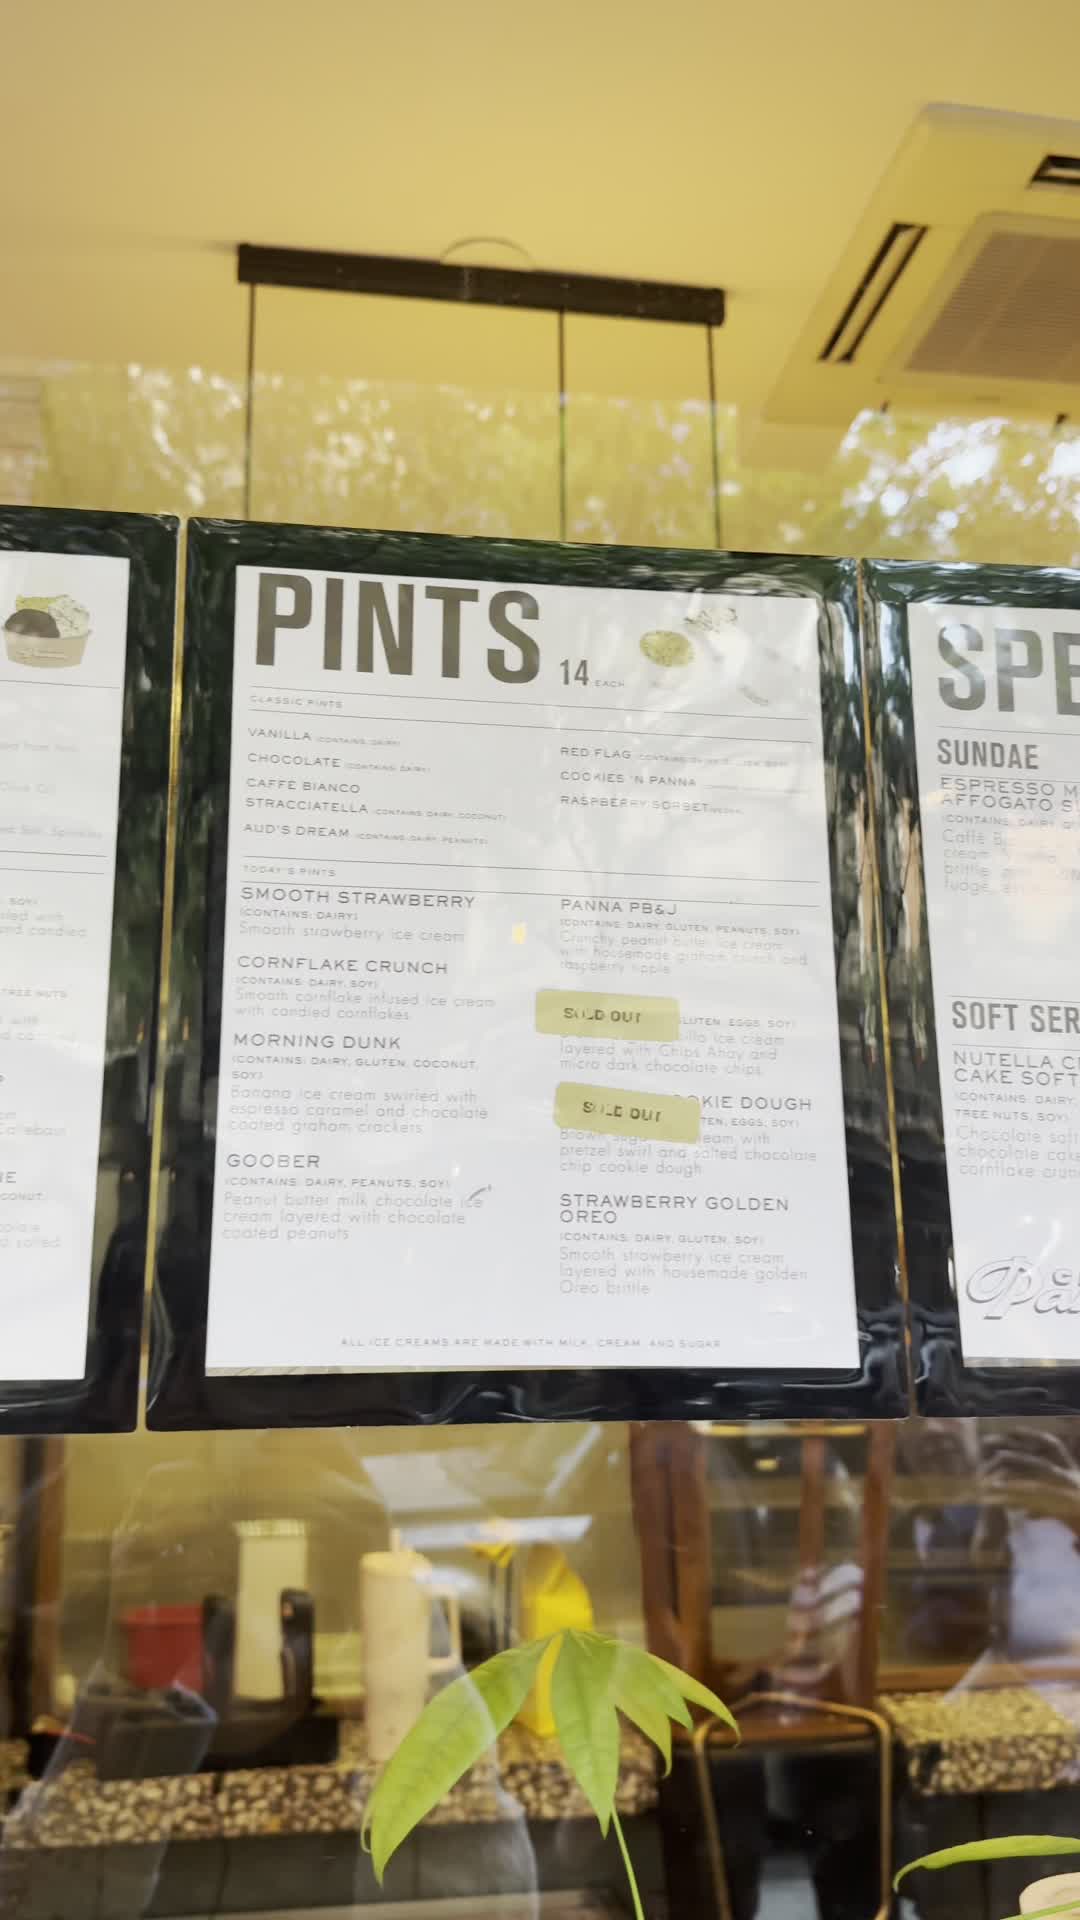 PINTS 14 EACH
CLASSIC PINTS
VANILLA (CONTAINS: DAIRY)
CHOCOLATE (CONTAINS: DAIRY)
CAFFE BIANCO
STRACCIATELLA (CONTAINS: DAIRY, COCONUT)
AUD'S DREAM (CONTAINS: DAIRY, PEANUTS)
RED FLAG
COOKIES 'N PANNA
RASPBERRY SORBET
TODAY'S PINTS
SMOOTH STRAWBERRY
(CONTAINS: DAIRY)
Smooth strawberry ice cream
CORNFLAKE CRUNCH
(CONTAINS: DAIRY, SOY)
Smooth cornflake infused ice cream
with candied cornflakes
MORNING DUNK
(CONTAINS: DAIRY, GLUTEN, COCONUT,
SOY)
Banana ice cream swirled with
espresso caramel and chocolate
coated graham crackers
GOOBER
(CONTAINS: DAIRY, PEANUTS, SOY)
Peanut butter milk chocolate ice
cream layered with chocolate
coated peanuts
PANNA PB&J
(CONTAINS: DAIRY, GLUTEN, PEANUTS, SOY)
Crunchy peanut butter ice cream
with housemade graham crunch and
raspberry ripple
SOLD OUT
GLUTEN, EGGS, SOY)
ice cream
layered with Chips Ahoy and
micro dark chocolate chips
SOLD OUT
DOUGH
EGGS, SOY)
Brown with
pretzel swirl and salted chocolate
chip cookie dough
STRAWBERRY GOLDEN
OREO
(CONTAINS: DAIRY, GLUTEN, SOY)
Smooth strawberry ice cream
layered with housemade golden
Oreo brittle
ALL ICE CREAMS ARE MADE WITH MILK, CREAM, AND SUGAR
SPE
SUNDAE
ESPRESSO M
AFFOGATO S
(CONTAINS: DAIRY
cream
brittle
fudge,
SOFT SER
NUTELLA C
CAKE SOFT
(CONTAINS: DAIRY,
TREE NUTS, SOY)
Chocolate soft
chocolate cake
cornflake crun
Sprinkles
SOY)
with
and candied
TREE NUTS
with
Callebaut
salted